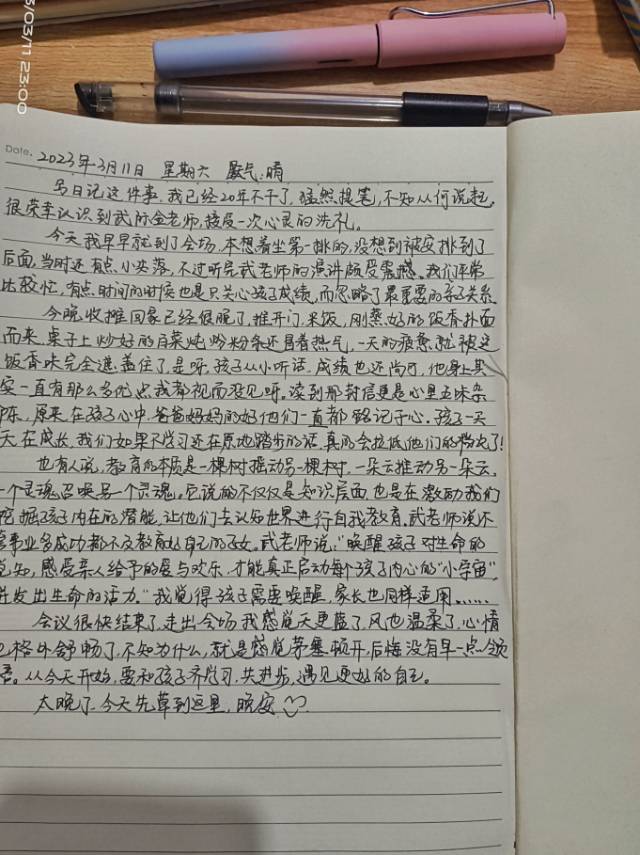 03/11 23:00
Date.
2023年3月11日 星期六 天气:晴
写日记这件事,我已经20年不干了,猛然提笔,不知从何说起,
很荣幸认识到武际金老师,接受一次心灵的洗礼。
今天我早早就到了会场,本想着坐第一排的,没想到被安排到了
后面,当时还有点小失落,不过听完武老师的演讲颇受震撼。我们平常
比较忙,有点时间的时候也是只关心孩子成绩,而忽略了最重要的亲子关系
今晚收摊回家已经很晚了,推开门,米饭,刚蒸好的饭香扑面
而来,桌子上炒好的白菜炖粉条还冒着热气,一天的疲惫就被这
饭香味完全遮盖住了,是呀,孩子从小听话,成绩也还尚可,他身上其
实一直有那么多优点我都视而没见呀。读到那封信更是心里五味杂
陈,原来在孩子心中,爸爸妈妈的好他们一直都铭记于心,孩子一天
天在成长,我们如果不学习还在原地踏步的话,真的会拉低他们的档次了!
也有人说,教育的本质是一棵树摇动另一棵树,一朵云推动另一朵云,
一个灵魂召唤另一个灵魂。它说的不仅仅是知识层面,也是在激励我们
挖掘孩子内在的潜能,让他们去认知世界进行自我教育。武老师说不
管事业多成功都不及教育好自己的子女。武老师说:"唤醒孩子对生命的
觉知,感受亲人给予的爱与欢乐,才能真正启动每个孩子内心的"小宇宙",
迸发出生命的活力。"我觉得孩子需要唤醒,家长也同样适用......
会议很快结束了,走出会场,我感觉天更蓝了,风也温柔了,心情
也格外舒畅了,不知为什么,就是感觉茅塞顿开,后悔没有早一点领
悟。从今天开始,要和孩子齐学习,共进步,遇见更好的自己。
太晚了,今天先草到这里,晚安♡